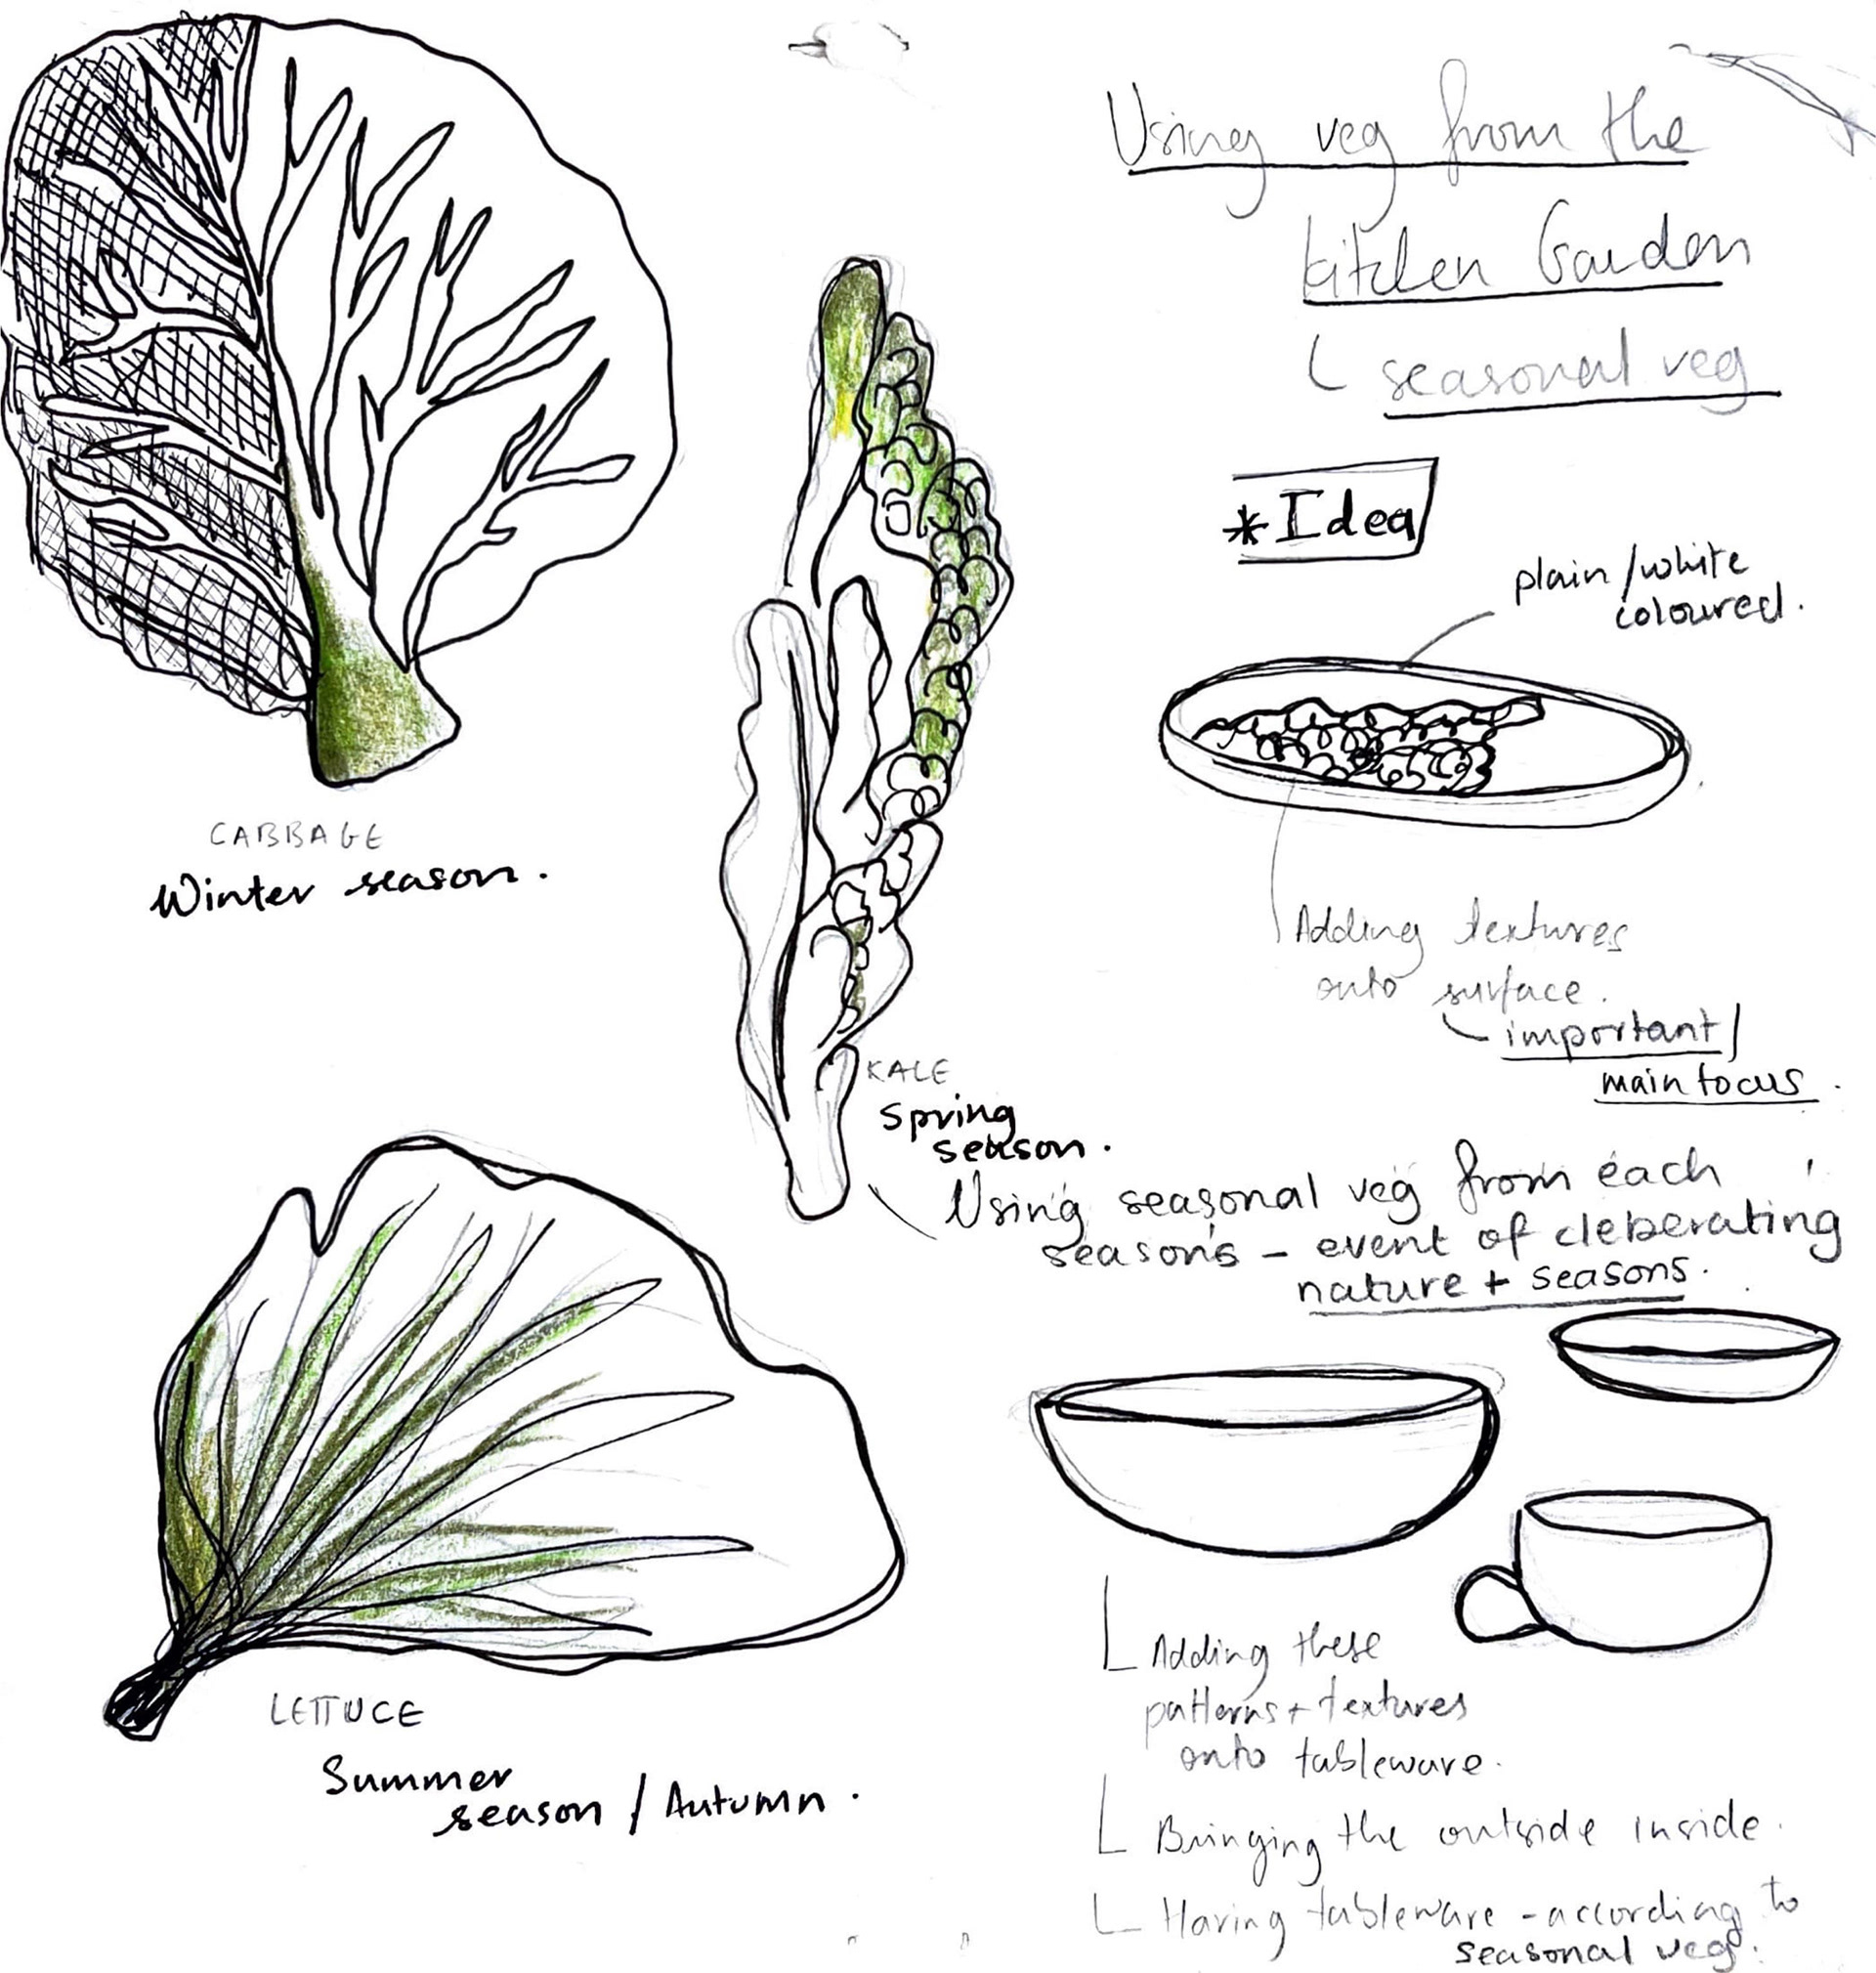 Using veg from the
kitchen Garden
seasonal veg
* Idea
plain/white
coloured.
Adding textures
onto surface.
important/
main focus.
CABBAGE
Winter season.
KALE
Spring
season.
Using seasonal veg from each
seasons - event of cleberating
nature + seasons.
LETTUCE
Summer
season / Autumn.
Adding these
patterns + textures
onto tableware.
Bringing the outside inside.
Having tableware - according to
seasonal veg.